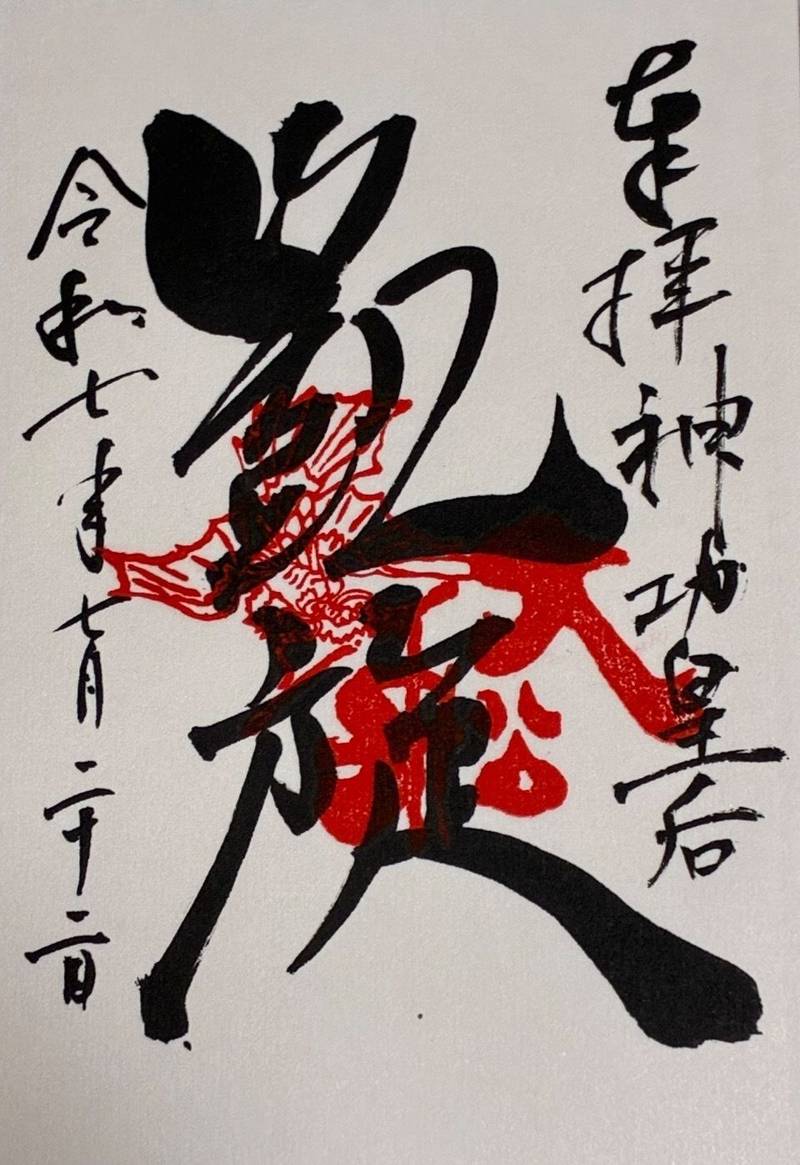 奉拝 神功皇后
凱旋
大船
令和七年七月二十二日